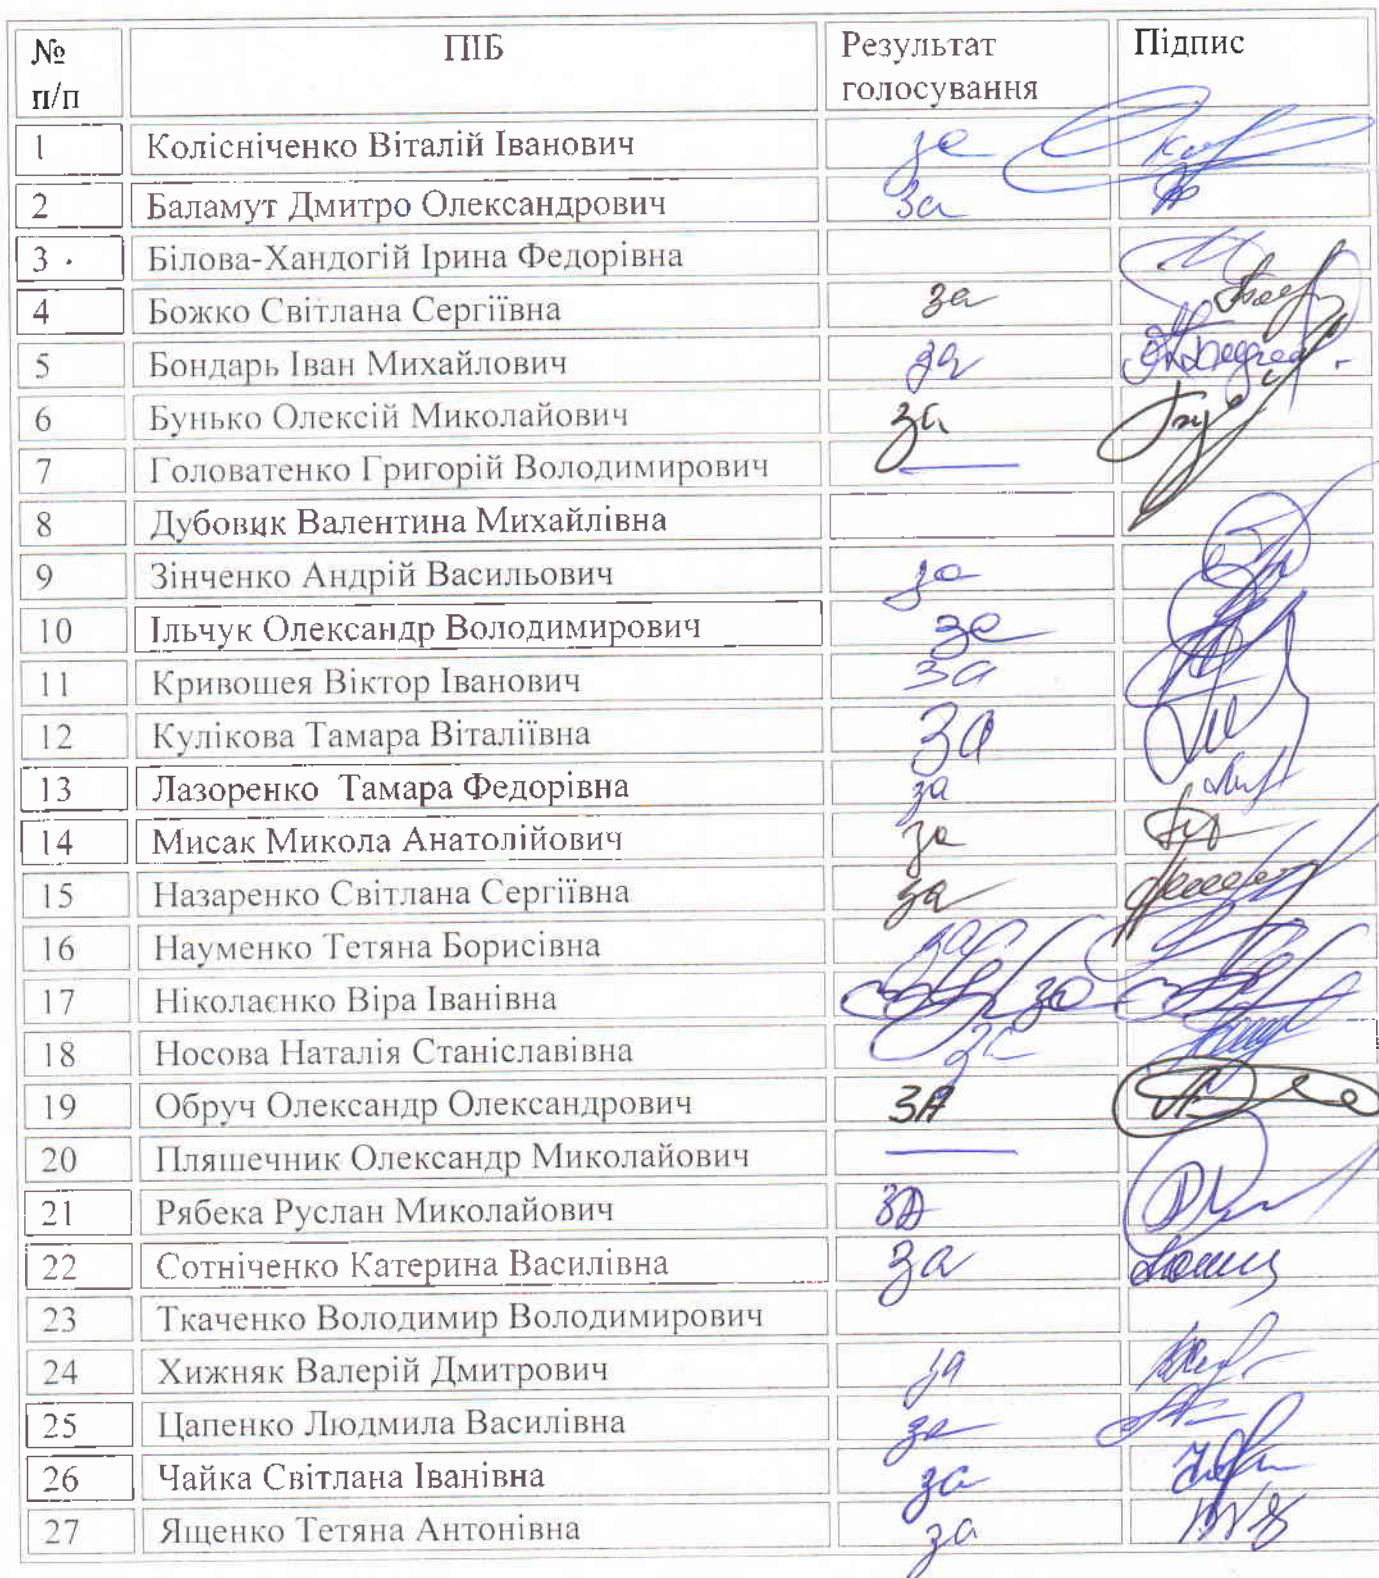 № п/п ПІБ Результат голосування Підпис
1 Колісніченко Віталій Іванович за
2 Баламут Дмитро Олександрович за
3 Білова-Хандогій Ірина Федорівна
4 Божко Світлана Сергіївна за
5 Бондарь Іван Михайлович за
6 Бунько Олексій Миколайович за
7 Головатенко Григорій Володимирович —
8 Дубовик Валентина Михайлівна
9 Зінченко Андрій Васильович за
10 Ільчук Олександр Володимирович за
11 Кривошея Віктор Іванович за
12 Кулікова Тамара Віталіївна за
13 Лазоренко Тамара Федорівна за
14 Мисак Микола Анатолійович за
15 Назаренко Світлана Сергіївна за
16 Науменко Тетяна Борисівна за
17 Ніколаєнко Віра Іванівна за
18 Носова Наталія Станіславівна за
19 Обруч Олександр Олександрович ЗА
20 Пляшечник Олександр Миколайович —
21 Рябека Руслан Миколайович ЗА
22 Сотніченко Катерина Василівна за
23 Ткаченко Володимир Володимирович
24 Хижняк Валерій Дмитрович за
25 Цапенко Людмила Василівна за
26 Чайка Світлана Іванівна за
27 Ященко Тетяна Антонівна за